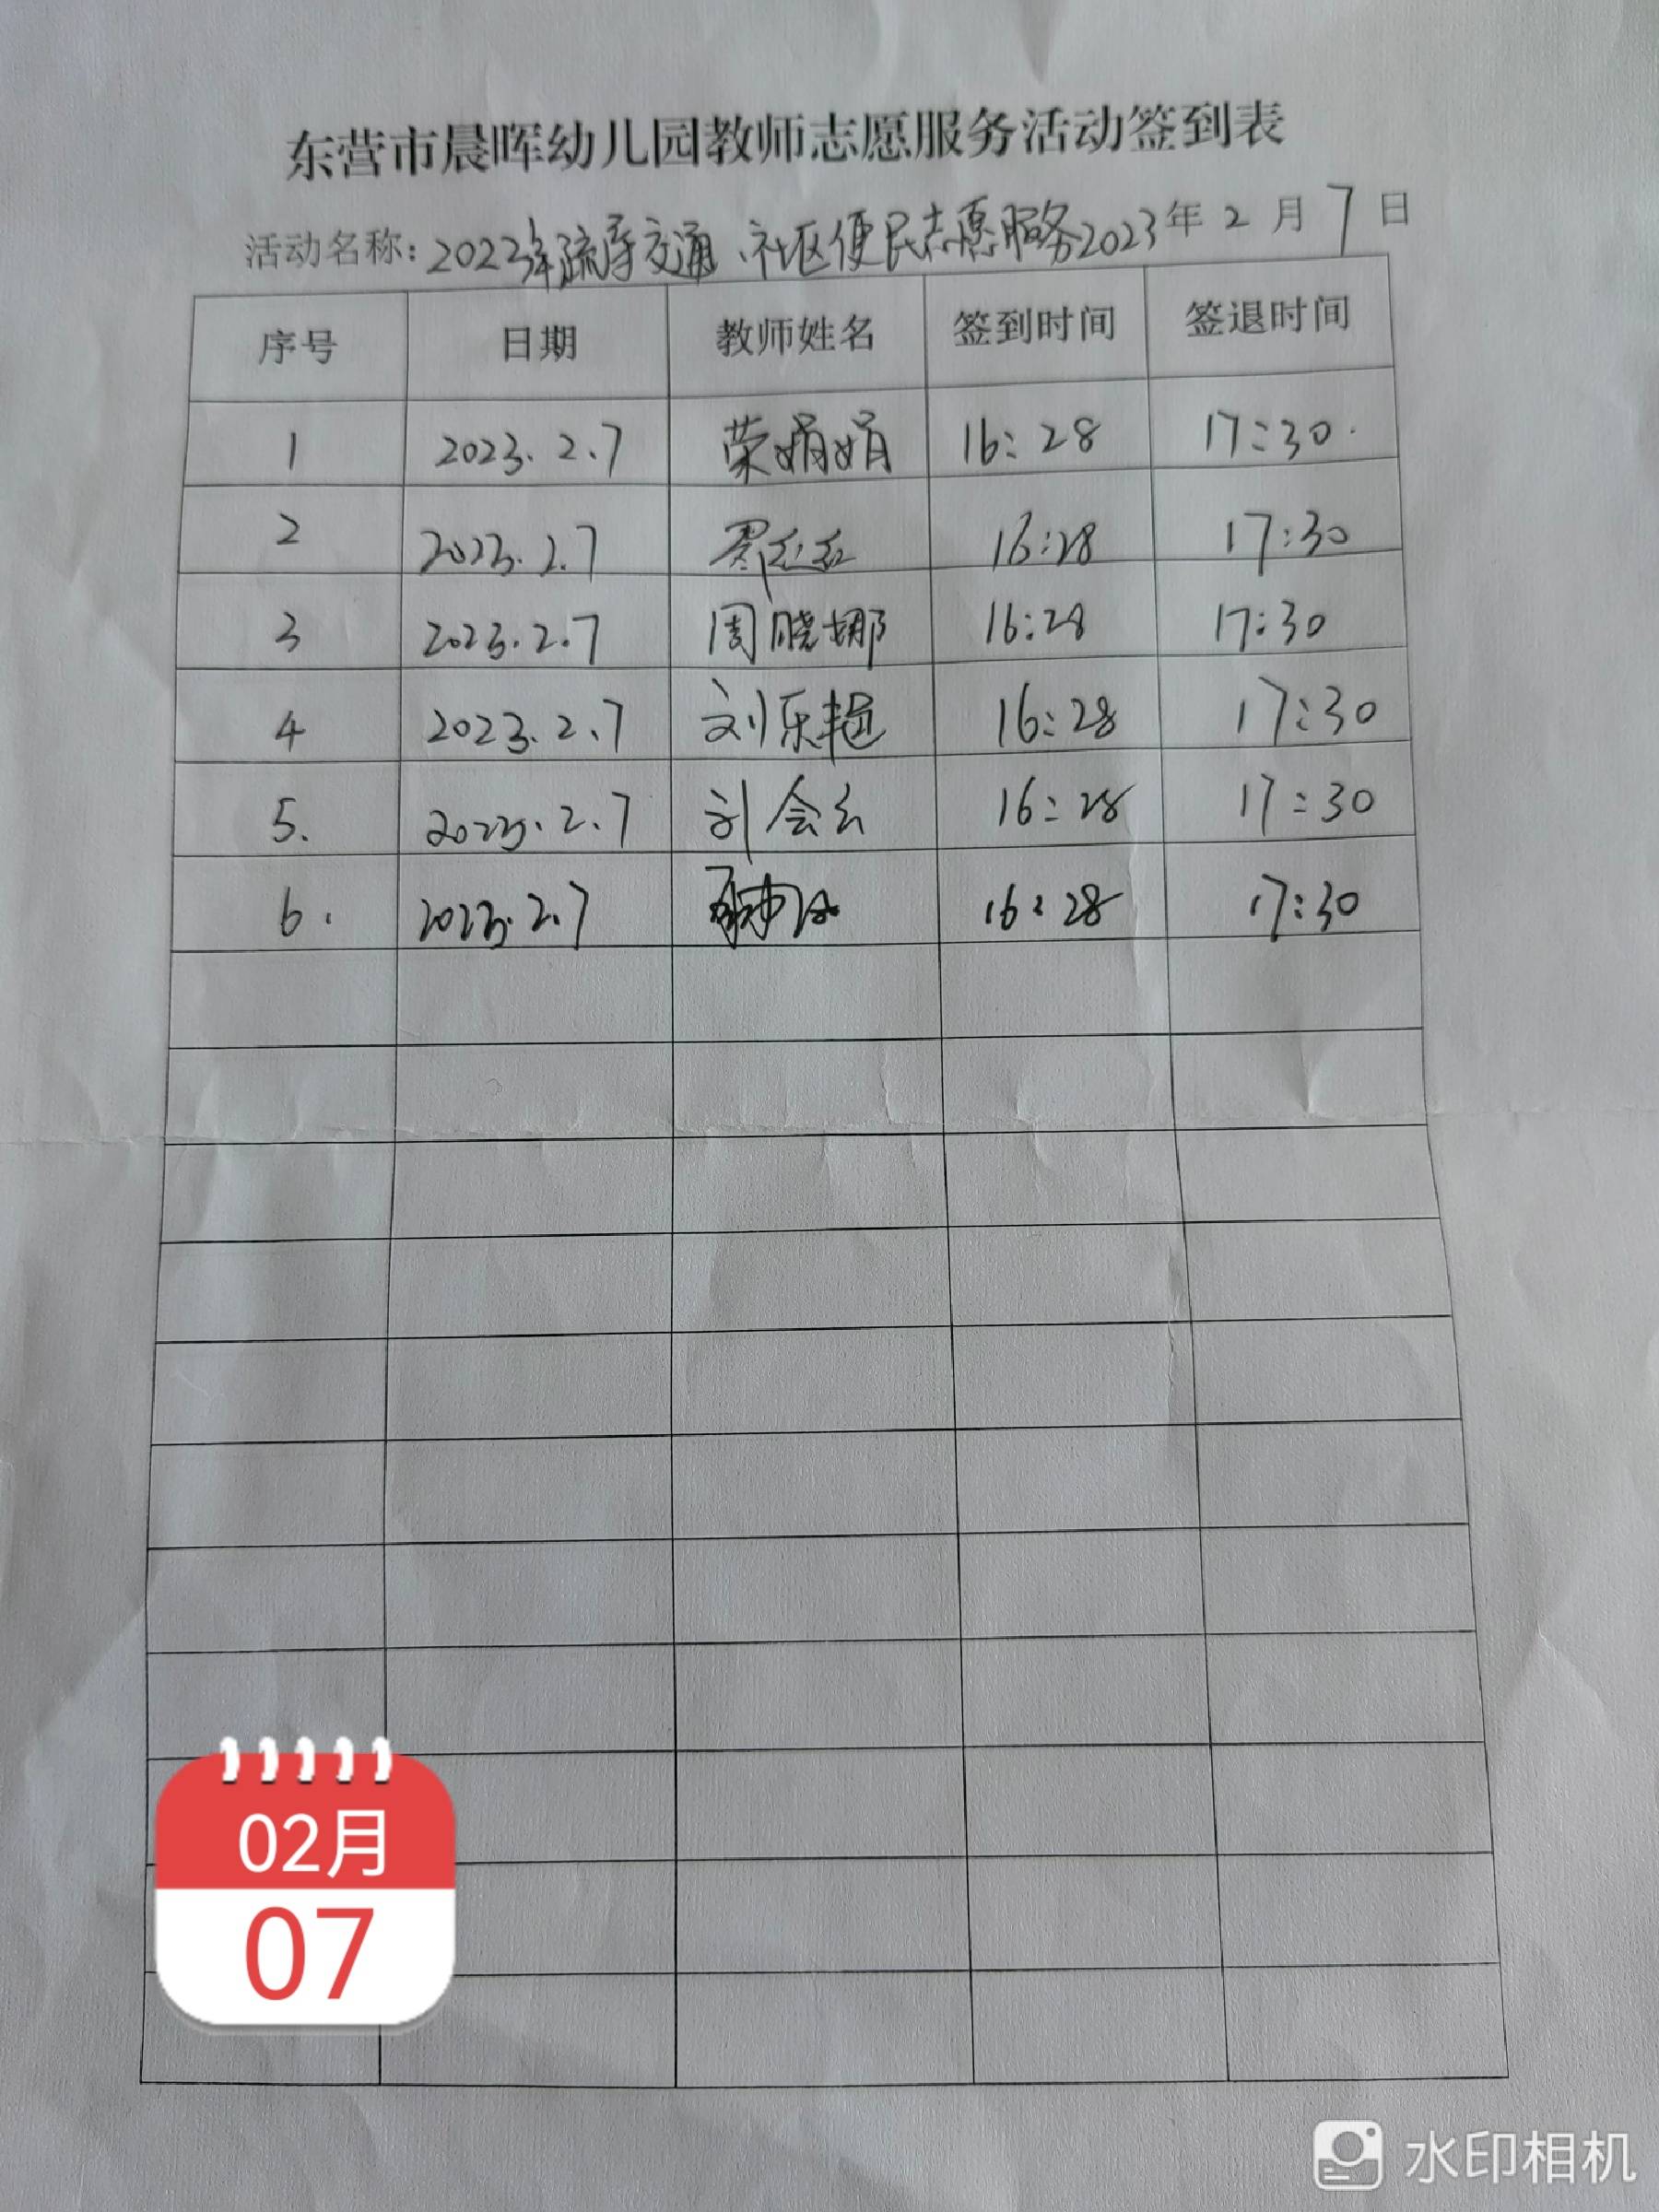 东营市晨晖幼儿园教师志愿服务活动签到表
活动名称：2023年疏导交通、社区便民志愿服务2023年2月7日
序号 日期 教师姓名 签到时间 签退时间
1 2023.2.7 荣娟娟 16:28 17:30.
2 2023.2.7 16:28 17:30
3 2023.2.7 周晓娜 16:28 17:30
4 2023.2.7 刘乐艳 16:28 17:30
5. 2023.2.7 刘会云 16:28 17:30
6. 2023.2.7 16:28 17:30
02月
07
水印相机